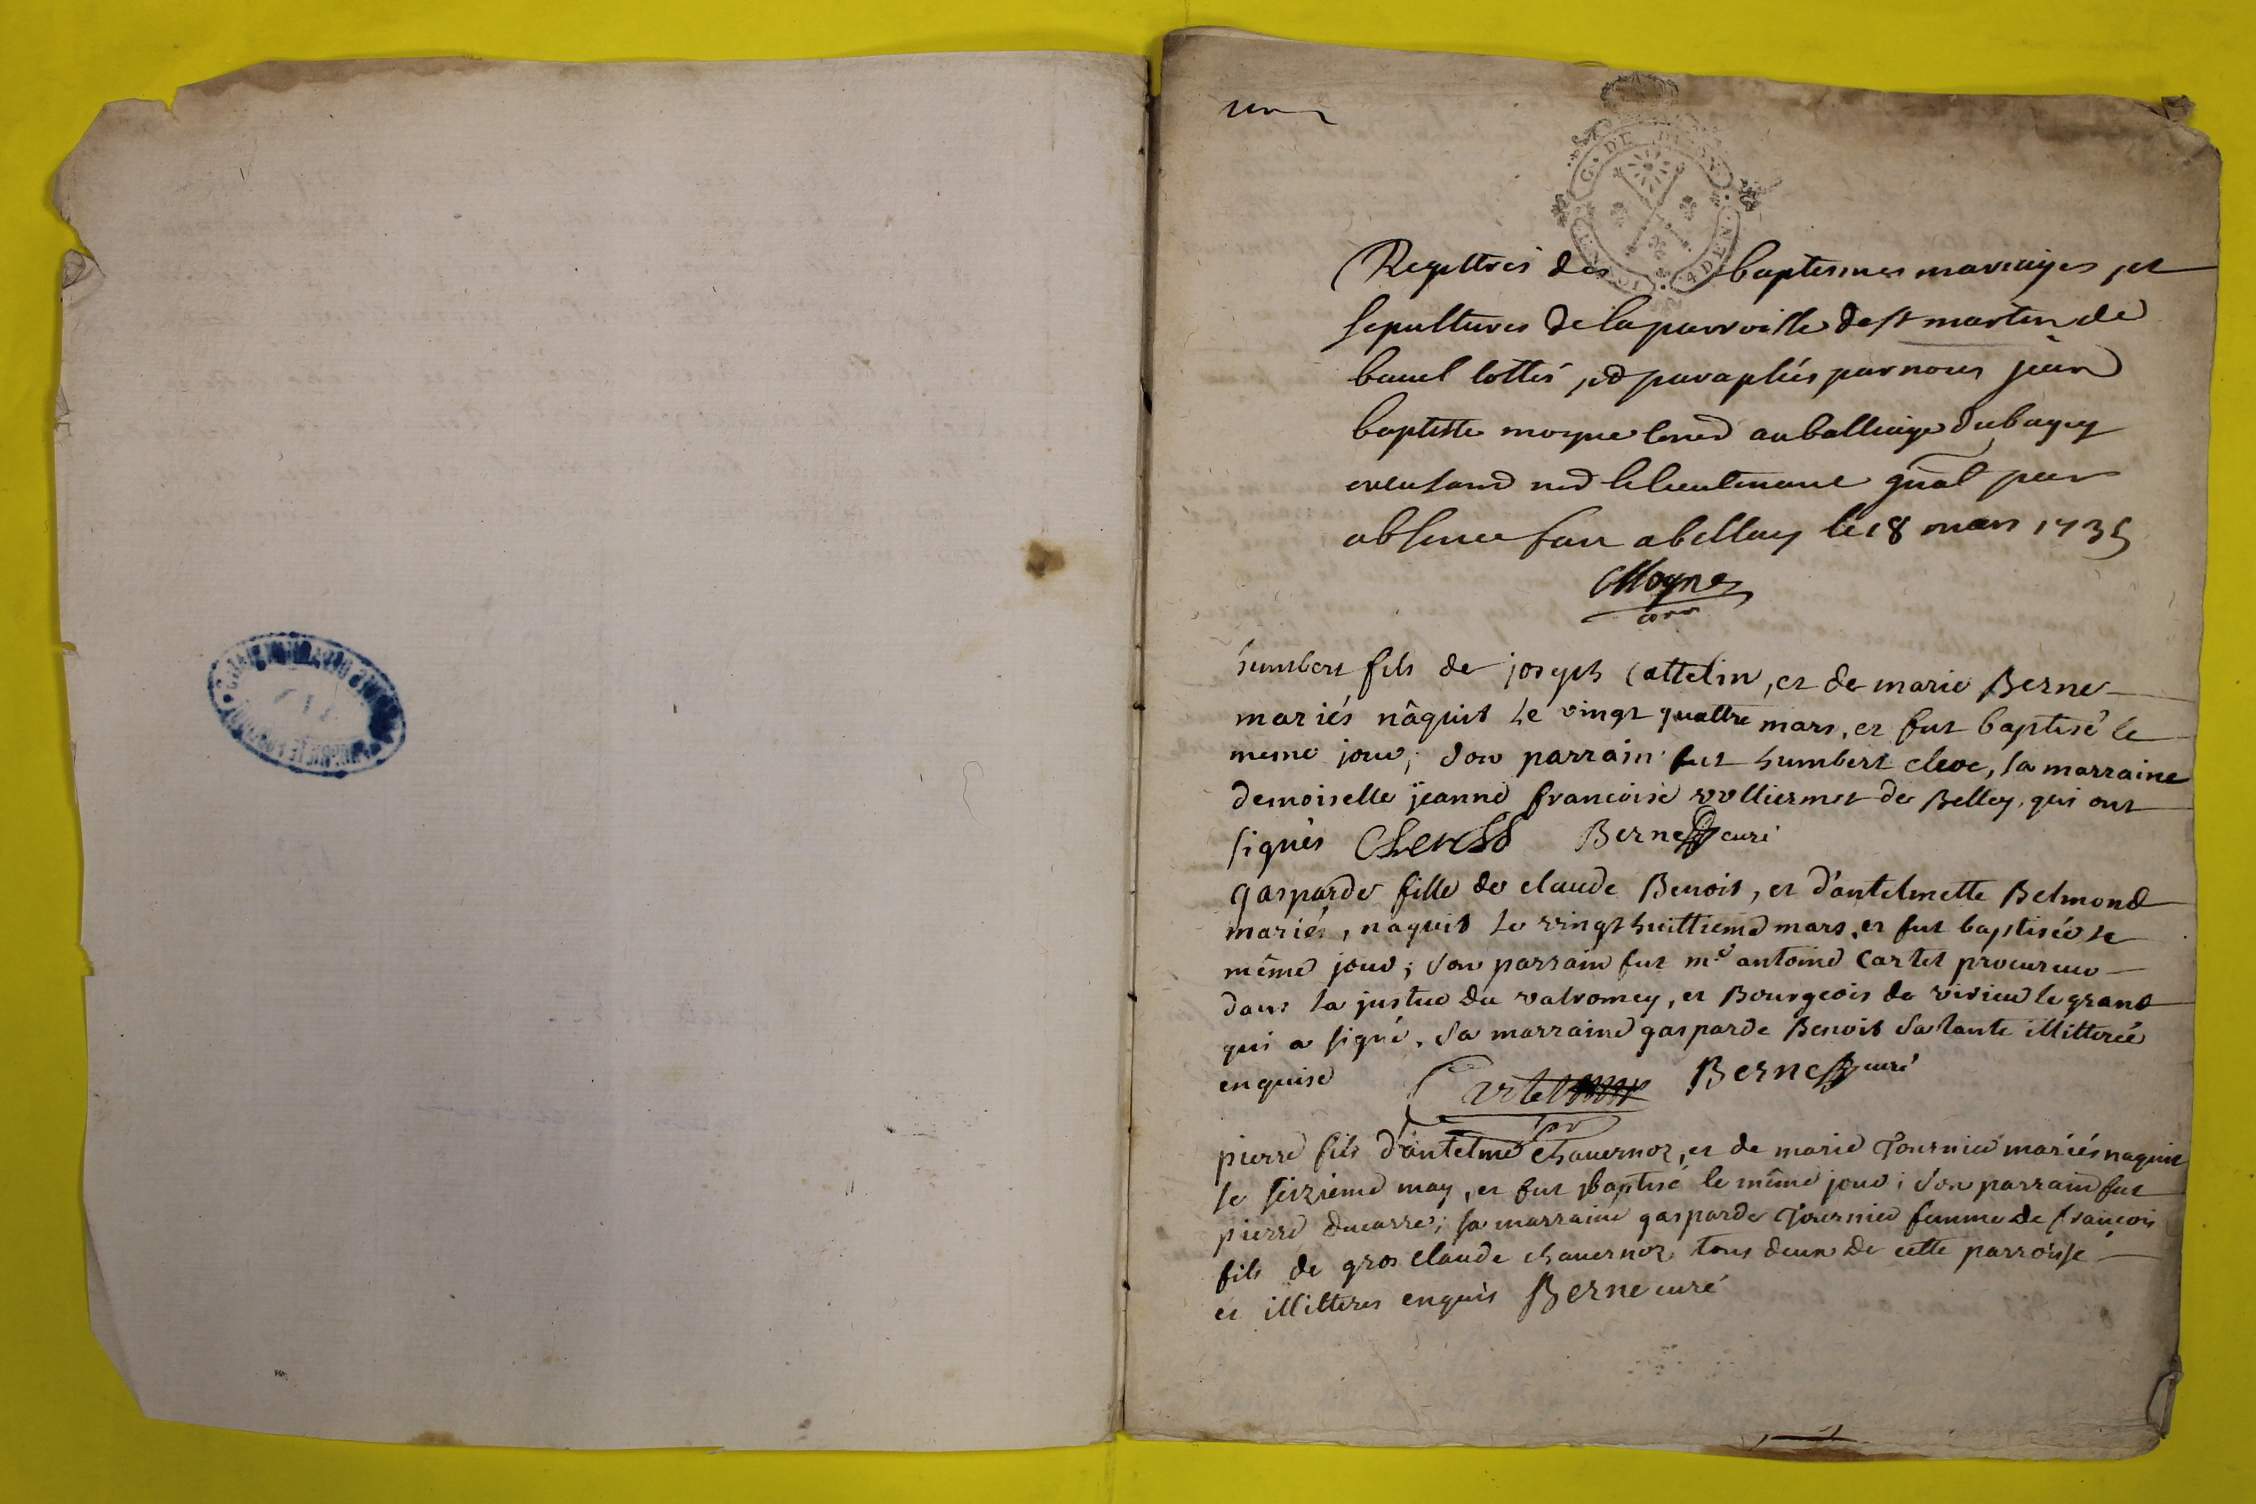 un
G. DE DIJON
Registres des baptesmes mariages et
sepultures de la parroisse de st martin de
bauel cottés et paraphés par nous jean
baptiste moyne au balliage du bugey
le lieutenant gnal par
absence fait a belley le 18 mars 1735
Moyne
humbert fils de joseph Cattelin, et de marie Berne
mariés nâquit le vingt quattre mars, et fut baptisé le
meme jour; son parrain fut humbert clerc, sa marraine
demoiselle jeanne francoise vulliermet de Belley, qui ont
signés Clerc Berne curé
gasparde fille de claude Benoit, et d'antelmette Belmond
mariés, naquit le vingt huittieme mars, et fut baptisée le
même jour; son parrain fut me antoine Cartet procureur
dans la justice du valromey, et Bourgeois de virieu le grand
qui a signé. sa marraine gasparde Benoit sa tante illitterée
enquise Cartet Berne curé
pierre fils d'antelme chauernoz, et de marie Tournier mariés naquit
le seizieme may, et fut baptisé le même jour; son parrain fut
pierre ducarre; sa marraine gasparde Tournier femme de francois
fils de gros claude chauernoz tous deux de cette parroisse
et illitteres enquis Berne curé